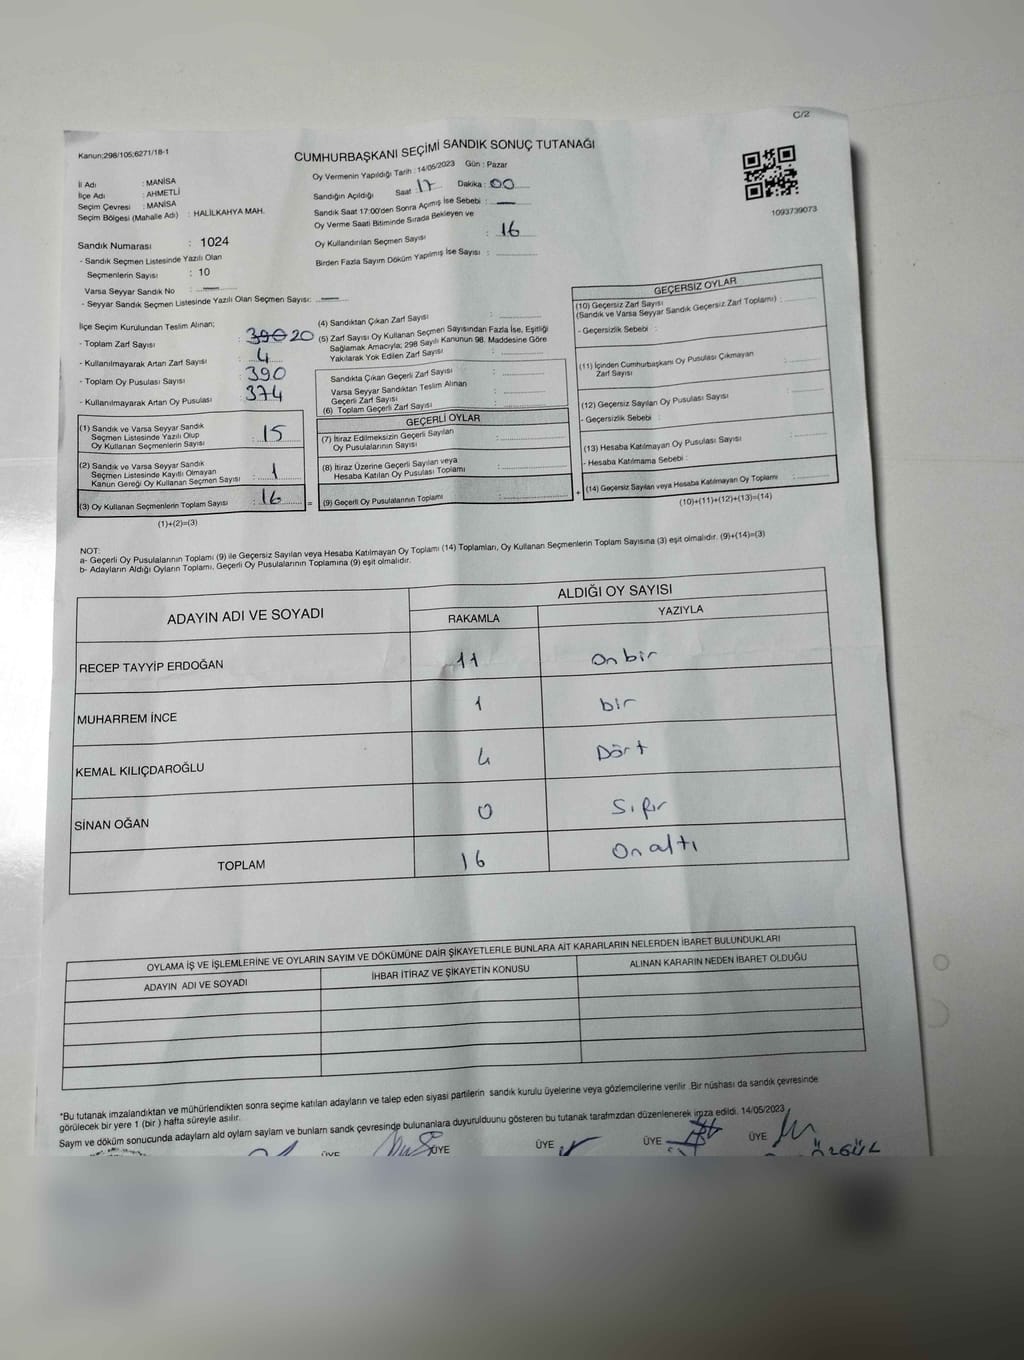 C/2
Kanun:298/105;6271/18-1
CUMHURBAŞKANI SEÇİMİ SANDIK SONUÇ TUTANAĞI
Oy Vermenin Yapıldığı Tarih : 14/05/2023 Gün : Pazar
İl Adı : MANİSA
İlçe Adı : AHMETLİ
Seçim Çevresi : MANİSA
Seçim Bölgesi (Mahalle Adı) : HALİLKAHYA MAH.
Sandığın Açıldığı Saat 17 Dakika : 00
Sandık Saat 17:00'den Sonra Açımış İse Sebebi : —
Oy Verme Saati Bitiminde Sırada Bekleyen ve
Oy Kullandırılan Seçmen Sayısı : 16
Birden Fazla Sayım Döküm Yapılmış İse Sayısı :
1093739073
Sandık Numarası : 1024
- Sandık Seçmen Listesinde Yazılı Olan
Seçmenlerin Sayısı : 10
Varsa Seyyar Sandık No : —
- Seyyar Sandık Seçmen Listesinde Yazılı Olan Seçmen Sayısı: —
İlçe Seçim Kurulundan Teslim Alınan;
- Toplam Zarf Sayısı : 390 20
- Kullanılmayarak Artan Zarf Sayısı : 4
- Toplam Oy Pusulası Sayısı : 390
- Kullanılmayarak Artan Oy Pusulası : 374
(1) Sandık ve Varsa Seyyar Sandık
Seçmen Listesinde Yazılı Olup
Oy Kullanan Seçmenlerin Sayısı : 15
(2) Sandık ve Varsa Seyyar Sandık
Seçmen Listesinde Kayıtlı Olmayan
Kanun Gereği Oy Kullanan Seçmen Sayısı : 1
(3) Oy Kullanan Seçmenlerin Toplam Sayısı : 16 =
(1)+(2)=(3)
(4) Sandıktan Çıkan Zarf Sayısı :
(5) Zarf Sayısı Oy Kullanan Seçmen Sayısından Fazla İse, Eşitliği
Sağlamak Amacıyla; 298 Sayılı Kanunun 98. Maddesine Göre
Yakılarak Yok Edilen Zarf Sayısı :
Sandıkta Çıkan Geçerli Zarf Sayısı :
Varsa Seyyar Sandıktan Teslim Alınan
Geçerli Zarf Sayısı :
(6) Toplam Geçerli Zarf Sayısı :
GEÇERLİ OYLAR
(7) İtiraz Edilmeksizin Geçerli Sayılan
Oy Pusulalarının Sayısı :
(8) İtiraz Üzerine Geçerli Sayılan veya
Hesaba Katılan Oy Pusulası Toplamı :
(9) Geçerli Oy Pusulalarının Toplamı : +
GEÇERSİZ OYLAR
(10) Geçersiz Zarf Sayısı
(Sandık ve Varsa Seyyar Sandık Geçersiz Zarf Toplamı) :
- Geçersizlik Sebebi :
(11) İçinden Cumhurbaşkanı Oy Pusulası Çıkmayan
Zarf Sayısı :
(12) Geçersiz Sayılan Oy Pusulası Sayısı :
- Geçersizlik Sebebi :
(13) Hesaba Katılmayan Oy Pusulası Sayısı :
- Hesaba Katılmama Sebebi :
(14) Geçersiz Sayılan veya Hesaba Katılmayan Oy Toplamı :
(10)+(11)+(12)+(13)=(14)
NOT:
a- Geçerli Oy Pusulalarının Toplamı (9) ile Geçersiz Sayılan veya Hesaba Katılmayan Oy Toplamı (14) Toplamları, Oy Kullanan Seçmenlerin Toplam Sayısına (3) eşit olmalıdır. (9)+(14)=(3)
b- Adayların Aldığı Oyların Toplamı, Geçerli Oy Pusulalarının Toplamına (9) eşit olmalıdır.
ADAYIN ADI VE SOYADI
ALDIĞI OY SAYISI
RAKAMLA YAZIYLA
RECEP TAYYİP ERDOĞAN 11 On bir
MUHARREM İNCE 1 bir
KEMAL KILIÇDAROĞLU 4 Dört
SİNAN OĞAN 0 Sıfır
TOPLAM 16 On altı
OYLAMA İŞ VE İŞLEMLERİNE VE OYLARIN SAYIM VE DÖKÜMÜNE DAİR ŞİKAYETLERLE BUNLARA AİT KARARLARIN NELERDEN İBARET BULUNDUKLARI
ADAYIN ADI VE SOYADI İHBAR İTİRAZ VE ŞİKAYETİN KONUSU ALINAN KARARIN NEDEN İBARET OLDUĞU
*Bu tutanak imzalandıktan ve mühürlendikten sonra seçime katılan adayların ve talep eden siyasi partilerin sandık kurulu üyelerine veya gözlemcilerine verilir .Bir nüshası da sandık çevresinde
görülecek bir yere 1 (bir ) hafta süreyle asılır.
Sayım ve döküm sonucunda adayların ald oyların saylam ve bunların sandk çevresinde bulunanlara duyurulduunu gösteren bu tutanak tarafmzdan düzenlenerek imza edildi. 14/05/2023
ÜYE ÜYE ÜYE ÜYE ÜYE